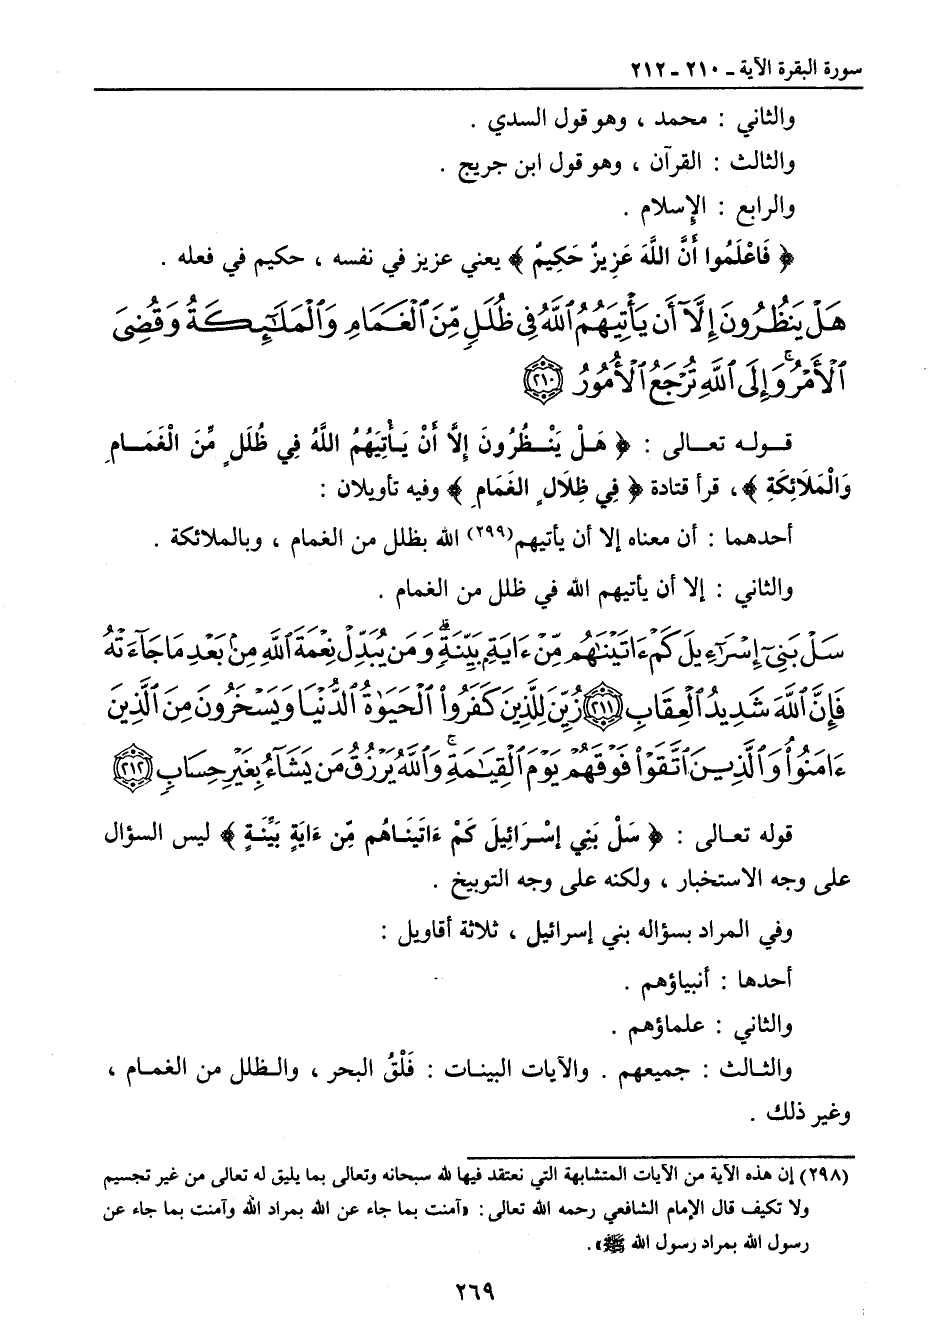 سورة البقرة الآية ـ ٢١٠ ـ ٢١٢
والثاني : محمد ، وهو قول السدي .
والثالث : القرآن ، وهو قول ابن جريج .
والرابع : الإسلام .
﴿ فَاعْلَمُوا أَنَّ اللَّهَ عَزِيزٌ حَكِيمٌ ﴾ يعني عزيز في نفسه ، حكيم في فعله .
هَلْ يَنظُرُونَ إِلَّآ أَن يَأْتِيَهُمُ ٱللَّهُ فِى ظُلَلٍ مِّنَ ٱلْغَمَامِ وَٱلْمَلَٰٓئِكَةُ وَقُضِىَ
ٱلْأَمْرُ ۚ وَإِلَى ٱللَّهِ تُرْجَعُ ٱلْأُمُورُ ٢١٠
قـولـه تعـالى : ﴿ هَـلْ يَنْـظُرُونَ إِلَّا أَنْ يَـأْتِيَهُمُ اللَّهُ فِي ظُلَلٍ مِّنَ الْغَمَـامِ
وَالْمَلَائِكَةِ ﴾ ، قرأ قتادة ﴿ فِي ظِلَالٍ الغَمَامِ ﴾ وفيه تأويلان :
أحدهما : أن معناه إلا أن يأتيهم(٢٩٩) الله بظلل من الغمام ، وبالملائكة .
والثاني : إلا أن يأتيهم الله في ظلل من الغمام .
سَلْ بَنِىٓ إِسْرَٰٓءِيلَ كَمْ ءَاتَيْنَٰهُم مِّنْ ءَايَةٍۭ بَيِّنَةٍ ۗ وَمَن يُبَدِّلْ نِعْمَةَ ٱللَّهِ مِنۢ بَعْدِ مَا جَآءَتْهُ
فَإِنَّ ٱللَّهَ شَدِيدُ ٱلْعِقَابِ ٢١١ زُيِّنَ لِلَّذِينَ كَفَرُوا۟ ٱلْحَيَوٰةُ ٱلدُّنْيَا وَيَسْخَرُونَ مِنَ ٱلَّذِينَ
ءَامَنُوا۟ ۘ وَٱلَّذِينَ ٱتَّقَوْا۟ فَوْقَهُمْ يَوْمَ ٱلْقِيَٰمَةِ ۗ وَٱللَّهُ يَرْزُقُ مَن يَشَآءُ بِغَيْرِ حِسَابٍ ٢١٢
قوله تعـالى : ﴿ سَلْ بَنِي إِسْـرَائِيلَ كَمْ ءَاتَيْنَـاهُم مِّن ءَايَةٍ بَيِّنَـةٍ ﴾ ليس السؤال
على وجه الاستخبار ، ولكنه على وجه التوبيخ .
وفي المراد بسؤاله بني إسرائيل ، ثلاثة أقاويل :
أحدها : أنبياؤهم .
والثاني : علماؤهم .
والثـالث : جميعهم . والآيات البينـات : فَلْقُ البحر ، والـظلل من الغمـام ،
وغير ذلك .
(٢٩٨) إن هذه الآية من الآيات المتشابهة التي نعتقد فيها لله سبحانه وتعالى بما يليق له تعالى من غير تجسيم
ولا تكيف قال الإمام الشافعي رحمه الله تعالى : «آمنت بما جاء عن الله بمراد الله وآمنت بما جاء عن
رسول الله بمراد رسول الله ﷺ» .
٢٦٩